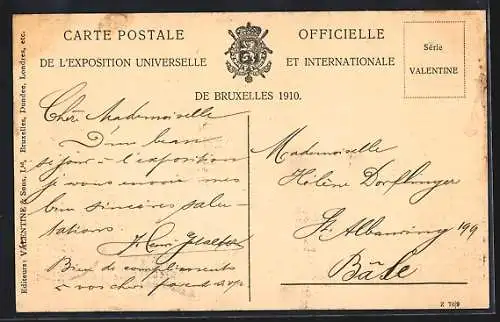 CARTE POSTALE OFFICIELLE
DE L'EXPOSITION UNIVERSELLE ET INTERNATIONALE
DE BRUXELLES 1910.
Série
VALENTINE
Editeurs: VALENTINE & Sons, Ld., Bruxelles, Dundee, Londres, etc.
Chère Mademoiselle
D'un beau
séjour à l'exposition
je vous envoie mes
bien sincères salu-
tations.
Henri
Bien de compliments
à vos chers parents
Mademoiselle
Hélène Dorflinger
St. Albanring 199
Bâle